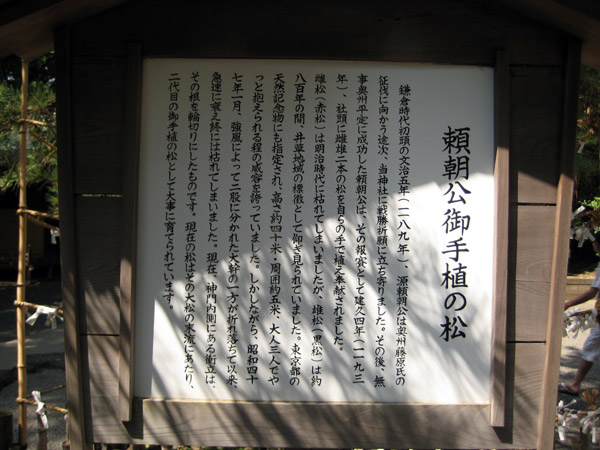 頼朝公御手植の松
鎌倉時代初頭の文治五年（一一八九年）、源頼朝公は奥州藤原氏の
征伐に向かう途次、当神社に戦勝祈願に立ち寄りました。その後、無
事奥州平定に成功した頼朝公は、その報賽として建久四年（一一九三
年）、社頭に雌雄二本の松を自らの手で植え奉献されました。
雌松（赤松）は明治時代に枯れてしまいましたが、雄松（黒松）は約
八百年の間、井草地域の標徴として仰ぎ見られていました。東京都の
天然記念物にも指定され、高さ約四十米・周囲約五米、大人三人でや
っと抱えられる程の威容を誇っていました。しかしながら、昭和四十
七年一月、強風によって二股に分かれた大幹の一方が折れ落ちて以来、
急速に衰え終には枯れてしまいました。現在、神門内側にある衝立は、
その根を輪切りにしたものです。現在の松はその大松の末流にあたり、
二代目の御手植の松として大事に育てられています。